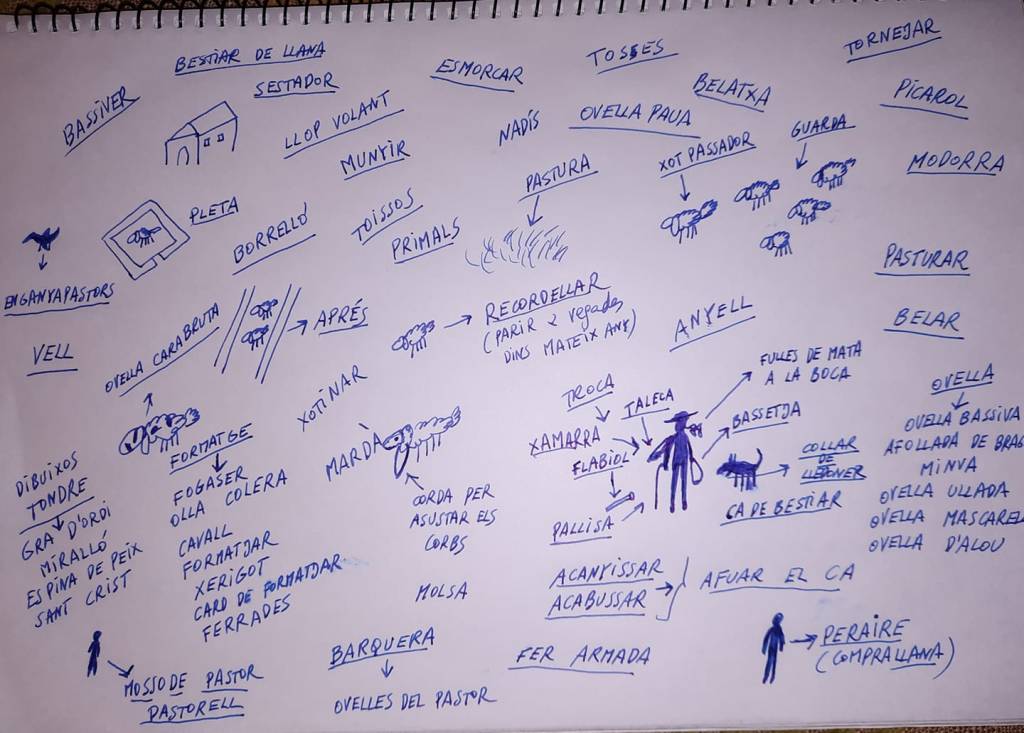 BESTIAR DE LLANA
BASSIVER
SESTADOR
ESMORCAR
TOSSES
TORNEJAR
LLOP VOLANT
MUNYIR
NADÍS
OVELLA PAUA
BELATXA
PICAROL
GUARDA
XOT PASSADOR
MODORRA
PASTURA
PLETA
BORRELLÓ
TOISSOS
PRIMALS
PASTURAR
ENGANYAPASTORS
VELL
OVELLA CARABRUTA
APRÉS
RECORDELLAR
(PARIR 2 vegades
DINS MATEIX ANY)
ANYELL
BELAR
XOTINAR
FULLES DE MATA
A LA BOCA
TROCA
TALECA
XAMARRA
FLABIOL
BASSETJA
OVELLA
OVELLA BASSIVA
AFOLLADA DE BRAG
MINVA
OVELLA ULLADA
OVELLA MASCARELL
OVELLA D'ALOU
COLLAR
DE
LLETONER
CA DE BESTIAR
PALLISA
MARDÀ
CORDA PER
ASUSTAR ELS
CORBS
FORMATGE
FOGASER
OLLA COLERA
CAVALL
FORMATJAR
XERIGOT
CARD DE FORMATJAR
FERRADES
DIBUIXOS
TONDRE
GRA D'ORDI
MIRALLÓ
ESPINA DE PEIX
SANT CRIST
MOLSA
ACANYISSAR
ACABUSSAR
AFUAR EL CA
MOSSO DE PASTOR
PASTORELL
BARQUERA
OVELLES DEL PASTOR
FER ARMADA
PERAIRE
(COMPRA LLANA)